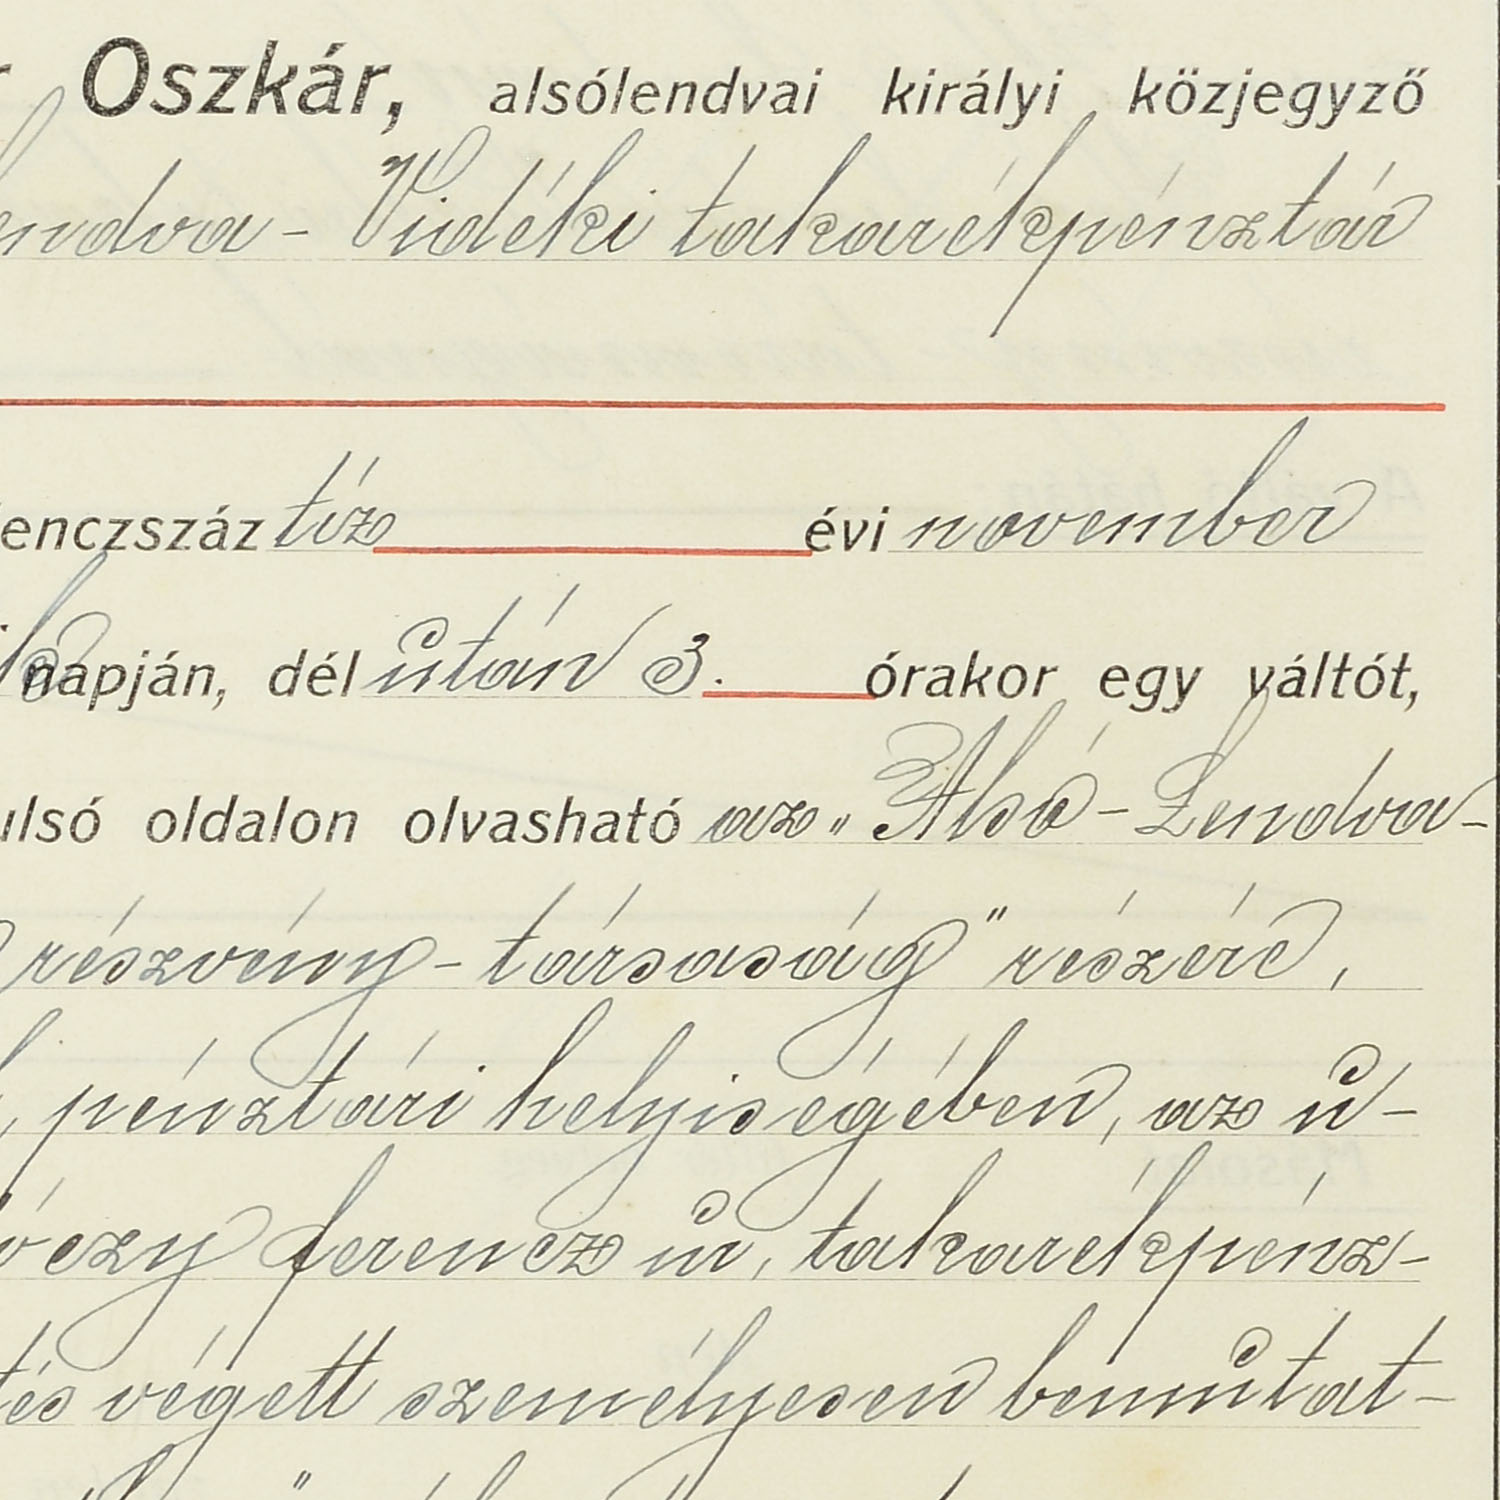 Oszkár, alsólendvai királyi közjegyző
endva - Vidéki takarékpénztár
enczszáz tiz évi november
napján, dél után 3. órakor egy váltót,
ulsó oldalon olvasható az „Alsó-Lendva-
részvény-társaság" részére,
pénztári helyiségében, az u-
óczy ferencz úr, takarékpénz-
tés végett személyesen bemutat-